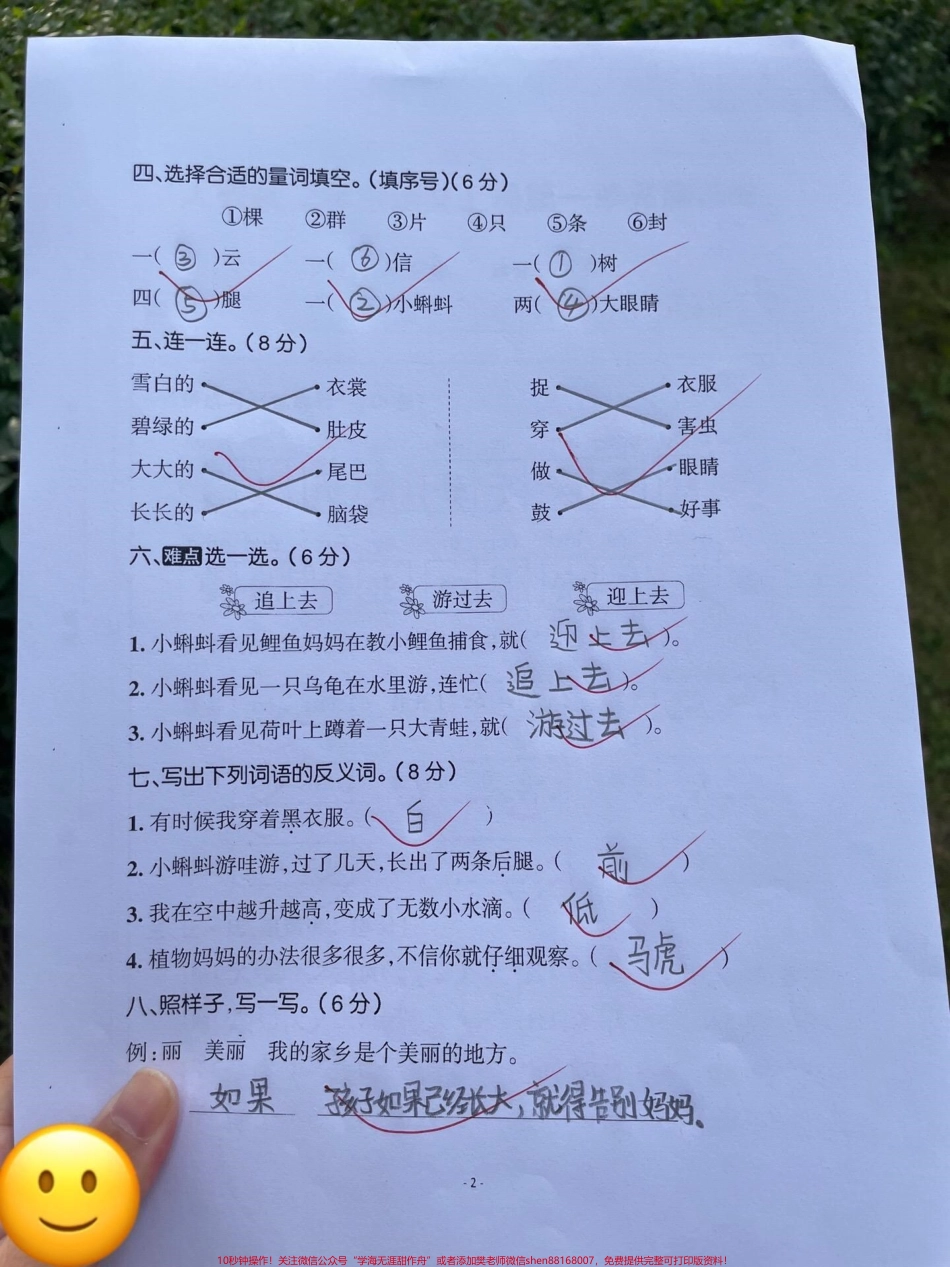 四、选择合适的量词填空。(填序号)(6分)
①棵 ②群 ③片 ④只 ⑤条 ⑥封
一(③)云 一(⑥)信 一(①)树
四(⑤)腿 一(②)小蝌蚪 两(④)大眼睛
五、连一连。(8分)
雪白的 衣裳 捉 衣服
碧绿的 肚皮 穿 害虫
大大的 尾巴 做 眼睛
长长的 脑袋 鼓 好事
六、难点选一选。(6分)
追上去 游过去 迎上去
1. 小蝌蚪看见鲤鱼妈妈在教小鲤鱼捕食,就(迎上去)。
2. 小蝌蚪看见一只乌龟在水里游,连忙(追上去)。
3. 小蝌蚪看见荷叶上蹲着一只大青蛙,就(游过去)。
七、写出下列词语的反义词。(8分)
1. 有时候我穿着黑衣服。(白)
2. 小蝌蚪游哇游,过了几天,长出了两条后腿。(前)
3. 我在空中越升越高,变成了无数小水滴。(低)
4. 植物妈妈的办法很多很多,不信你就仔细观察。(马虎)
八、照样子,写一写。(6分)
例:丽 美丽 我的家乡是个美丽的地方。
如果 孩子如果已经长大,就得告别妈妈。
- 2 -
10秒钟操作!关注微信公众号“学海无涯甜作舟”或者添加樊老师微信shen88168007,免费提供完整可打印版资料!